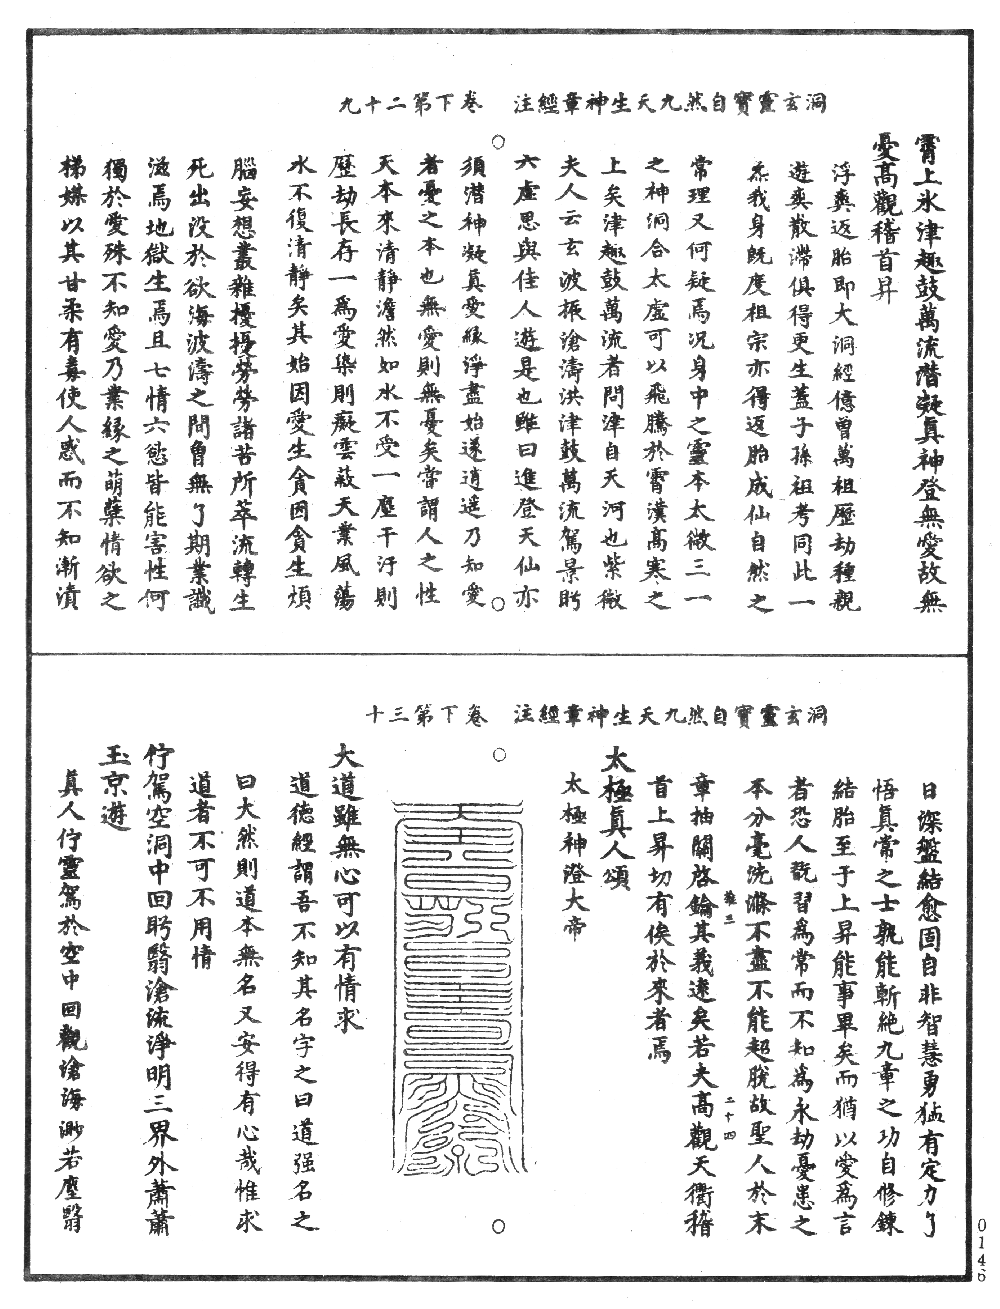 洞玄靈寶自然九天生神章經注　卷下第二十九
霄上冰津趣鼓萬流潛凝真神登無愛故無
憂高觀稽首昇
浮爽返胎即大洞經億曾萬祖歷劫種親
遊爽散滯俱得更生蓋子孫祖考同此一
炁我身既度祖宗亦得返胎成仙自然之
常理又何疑焉況身中之靈本太微三一
之神洞合太虛可以飛騰於霄漢高寒之
上矣津趣鼓萬流者問津自天河也紫微
夫人云玄波振滄濤洪津鼓萬流駕景眄
六虛思與佳人遊是也雖曰進登天仙亦
須潛神凝真愛緣淨盡始遂逍遙乃知愛
者憂之本也無愛則無憂矣嘗謂人之性
天本來清靜澹然如水不受一塵干汙則
歷劫長存一為愛染則癡雲蔽天業風蕩
水不復清靜矣其始因愛生貪因貪生煩
腦妄想叢雜擾擾勞勞諸苦所萃流轉生
死出沒於欲海波濤之間曾無了期業識
滋焉地獄生焉且七情六慾皆能害性何
獨於愛殊不知愛乃業緣之萌蘖情欲之
梯媒以其甘柔有毒使人惑而不知漸漬
洞玄靈寶自然九天生神章經注　卷下第三十
日深盤結愈固自非智慧勇猛有定力了
悟真常之士孰能斬絕九章之功自修鍊
結胎至于上昇能事畢矣而猶以愛為言
者恐人翫習為常而不知為永劫憂患之
本分毫洗滌不盡不能超脫故聖人於末
章抽關啓鑰其義遠矣若夫高觀天衢稽
二十四
首上昇切有俟於來者焉
太極真人頌
太極神澄大帝
大道雖無心可以有情求
道德經謂吾不知其名字之曰道強名之
曰大然則道本無名又安得有心哉惟求
道者不可不用情
佇駕空洞中回眄翳滄流淨明三界外蕭蕭
玉京遊
真人佇靈駕於空中回觀滄海渺若塵翳
0146